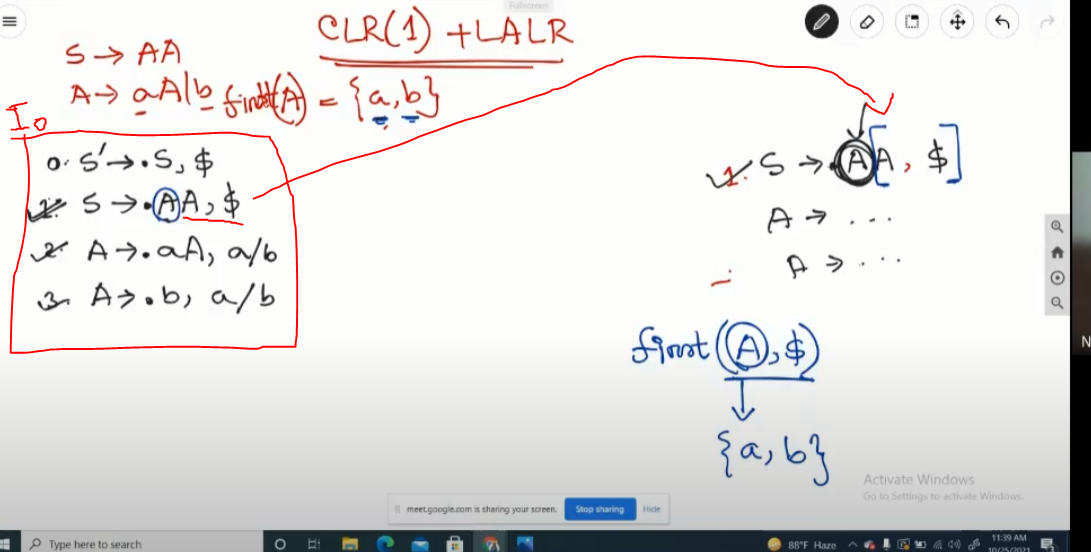 Fullscreen
CLR(1) + LALR
S → AA
A → aA|b first(A) = {a, b}
I0
0. S' → .S, $
1. S → .AA, $
2. A → .aA, a/b
3. A → .b, a/b
1. S → .AA, $
A → ...
A → ...
first(A, $)
{a, b}
Activate Windows
Go to Settings to activate Windows.
meet.google.com is sharing your screen. Stop sharing Hide
N
Type here to search
88°F Haze
11:39 AM
10/25/2021